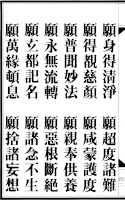 願身得清淨　願超度諸難
願得覩慈顏　願咸蒙護度
願普聞妙法　願親奉供養
願永無流轉　願惡根斷絕
願玄都記名　願諸念不生
願萬緣頓息　願捨諸妄想